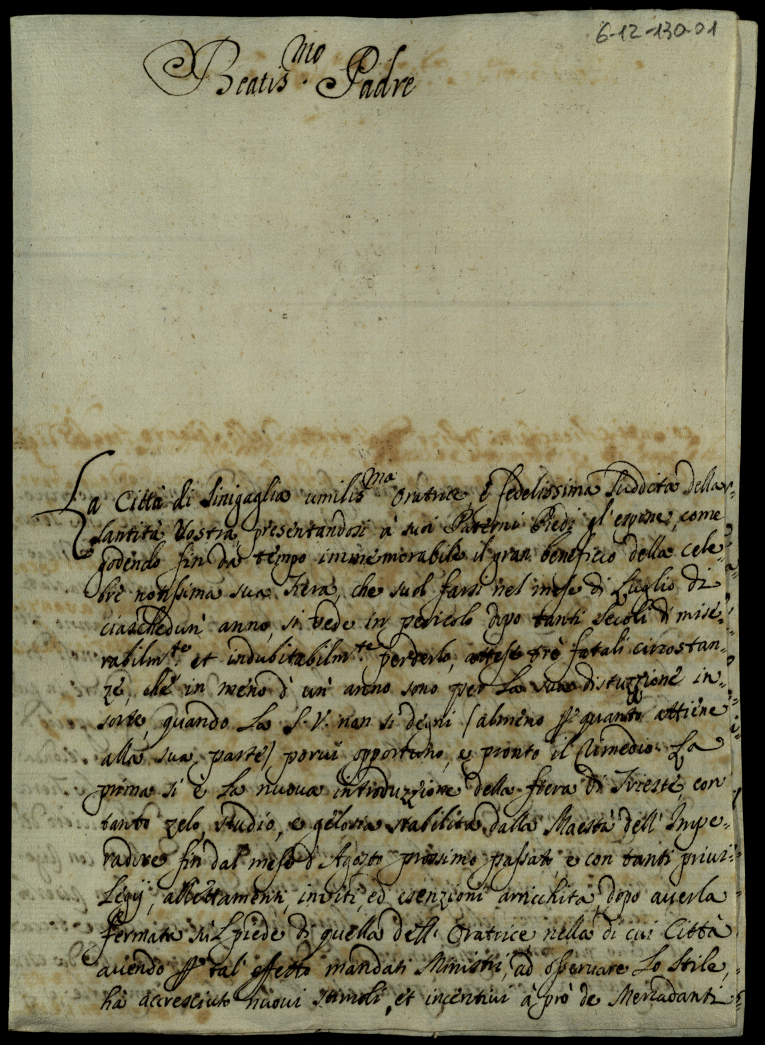 6-12-130-01
Beatis.mo Padre
La Città di Sinigaglia umilis.ma Oratrice e fedelissima Suddita della
Santità Vostra, presentandosi à suoi Paterni Piedi gl'espone, come
godendo fin da tempo immemorabile il gran beneficio della cele-
bre notissima sua Fiera, che suol farsi nel mese di Luglio di
ciaschedun' anno, si vede in pericolo dopo tanti secoli di mise-
rabilm.te et indubitabilm.te perderlo, attese trè fatali circostan-
ze, che in meno d'un' anno sono per la sua distruzzione in-
sorte, quando la S. V. non si degni (almeno p quanto attiene
alla sua parte) porvi opportuno, e pronto il rimedio. La
prima si è la nuova introduzzione della fiera di Trieste, con
tanto zelo, studio, e gelosia stabilita dalla Maestà dell' Impe-
radore fin dal mese d'Agosto prossimo passato, e con tanti privi-
legij, allettamenti, inviti, ed esenzioni arricchita, dopo averla
fermata sù l piede di quella dell' Oratrice nella di cui Città
avendo p tal' effetto mandati Ministri, ad osservare lo stile,
hà accresciuto nuovi stimoli, et incentivi à prò de Mercadanti